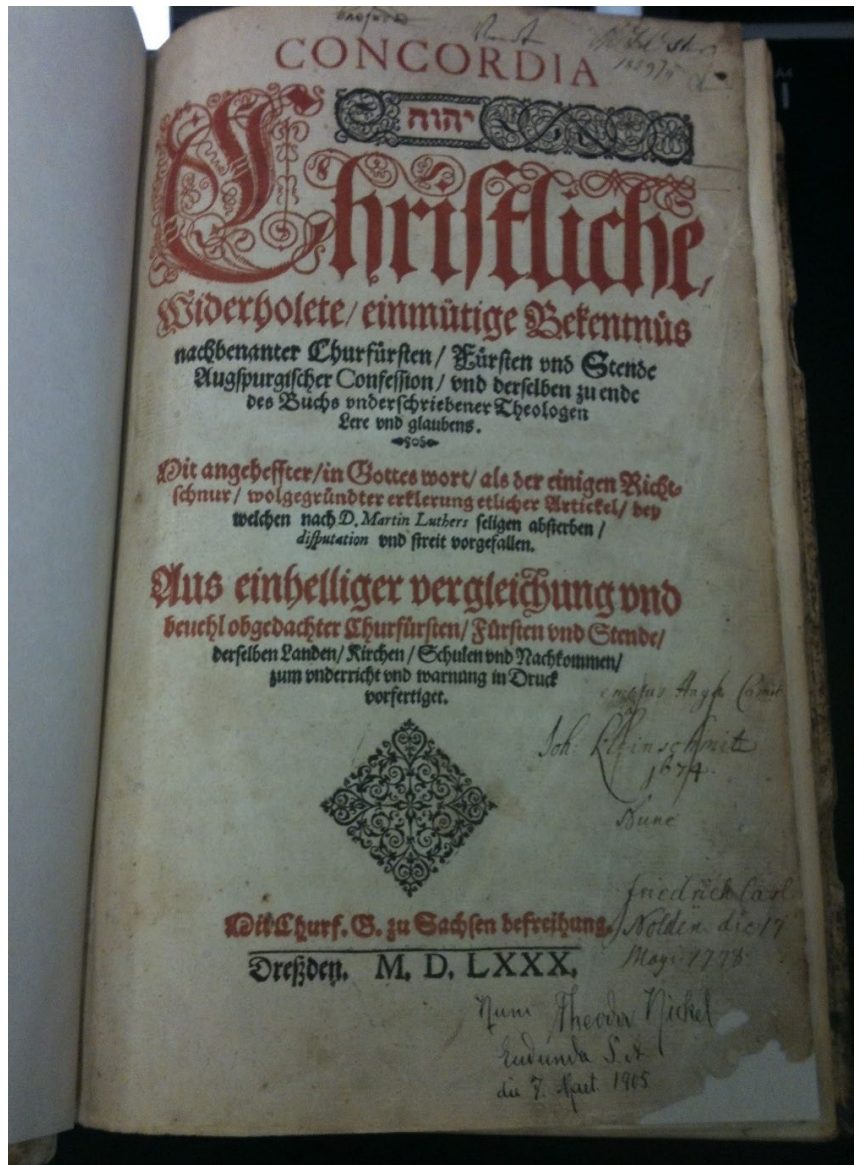 CONCORDIA
יהוה
Christliche,
Widerholete/ einmütige Bekentnüs
nachbenanter Churfürsten/ Fürsten vnd Stende
Augspurgischer Confession/ vnd derselben zu ende
des Buchs vnderschriebener Theologen
Lere vnd glaubens.
Mit angeheffter/ in Gottes wort/ als der einigen Richt-
schnur/ wolgegründter erklerung etlicher Artickel/ bey
welchen nach D. Martin Luthers seligen absterben/
disputation vnd streit vorgefallen.
Aus einhelliger vergleichung vnd
beuehl obgedachter Churfürsten/ Fürsten vnd Stende/
derselben Landen/ Kirchen/ Schulen vnd Nachkommen/
zum vnderricht vnd warnung in Druck
vorfertiget.
Joh. Kleinschmit
1674.
Nunc
Friedrich Carl
Nolden die 17
1778
Mit Churf. G. zu Sachsen befreihung.
Dreßden. M. D. LXXX.
Nunc Theodor Nickel
Eudunda S. A.
die 7. Mart. 1905